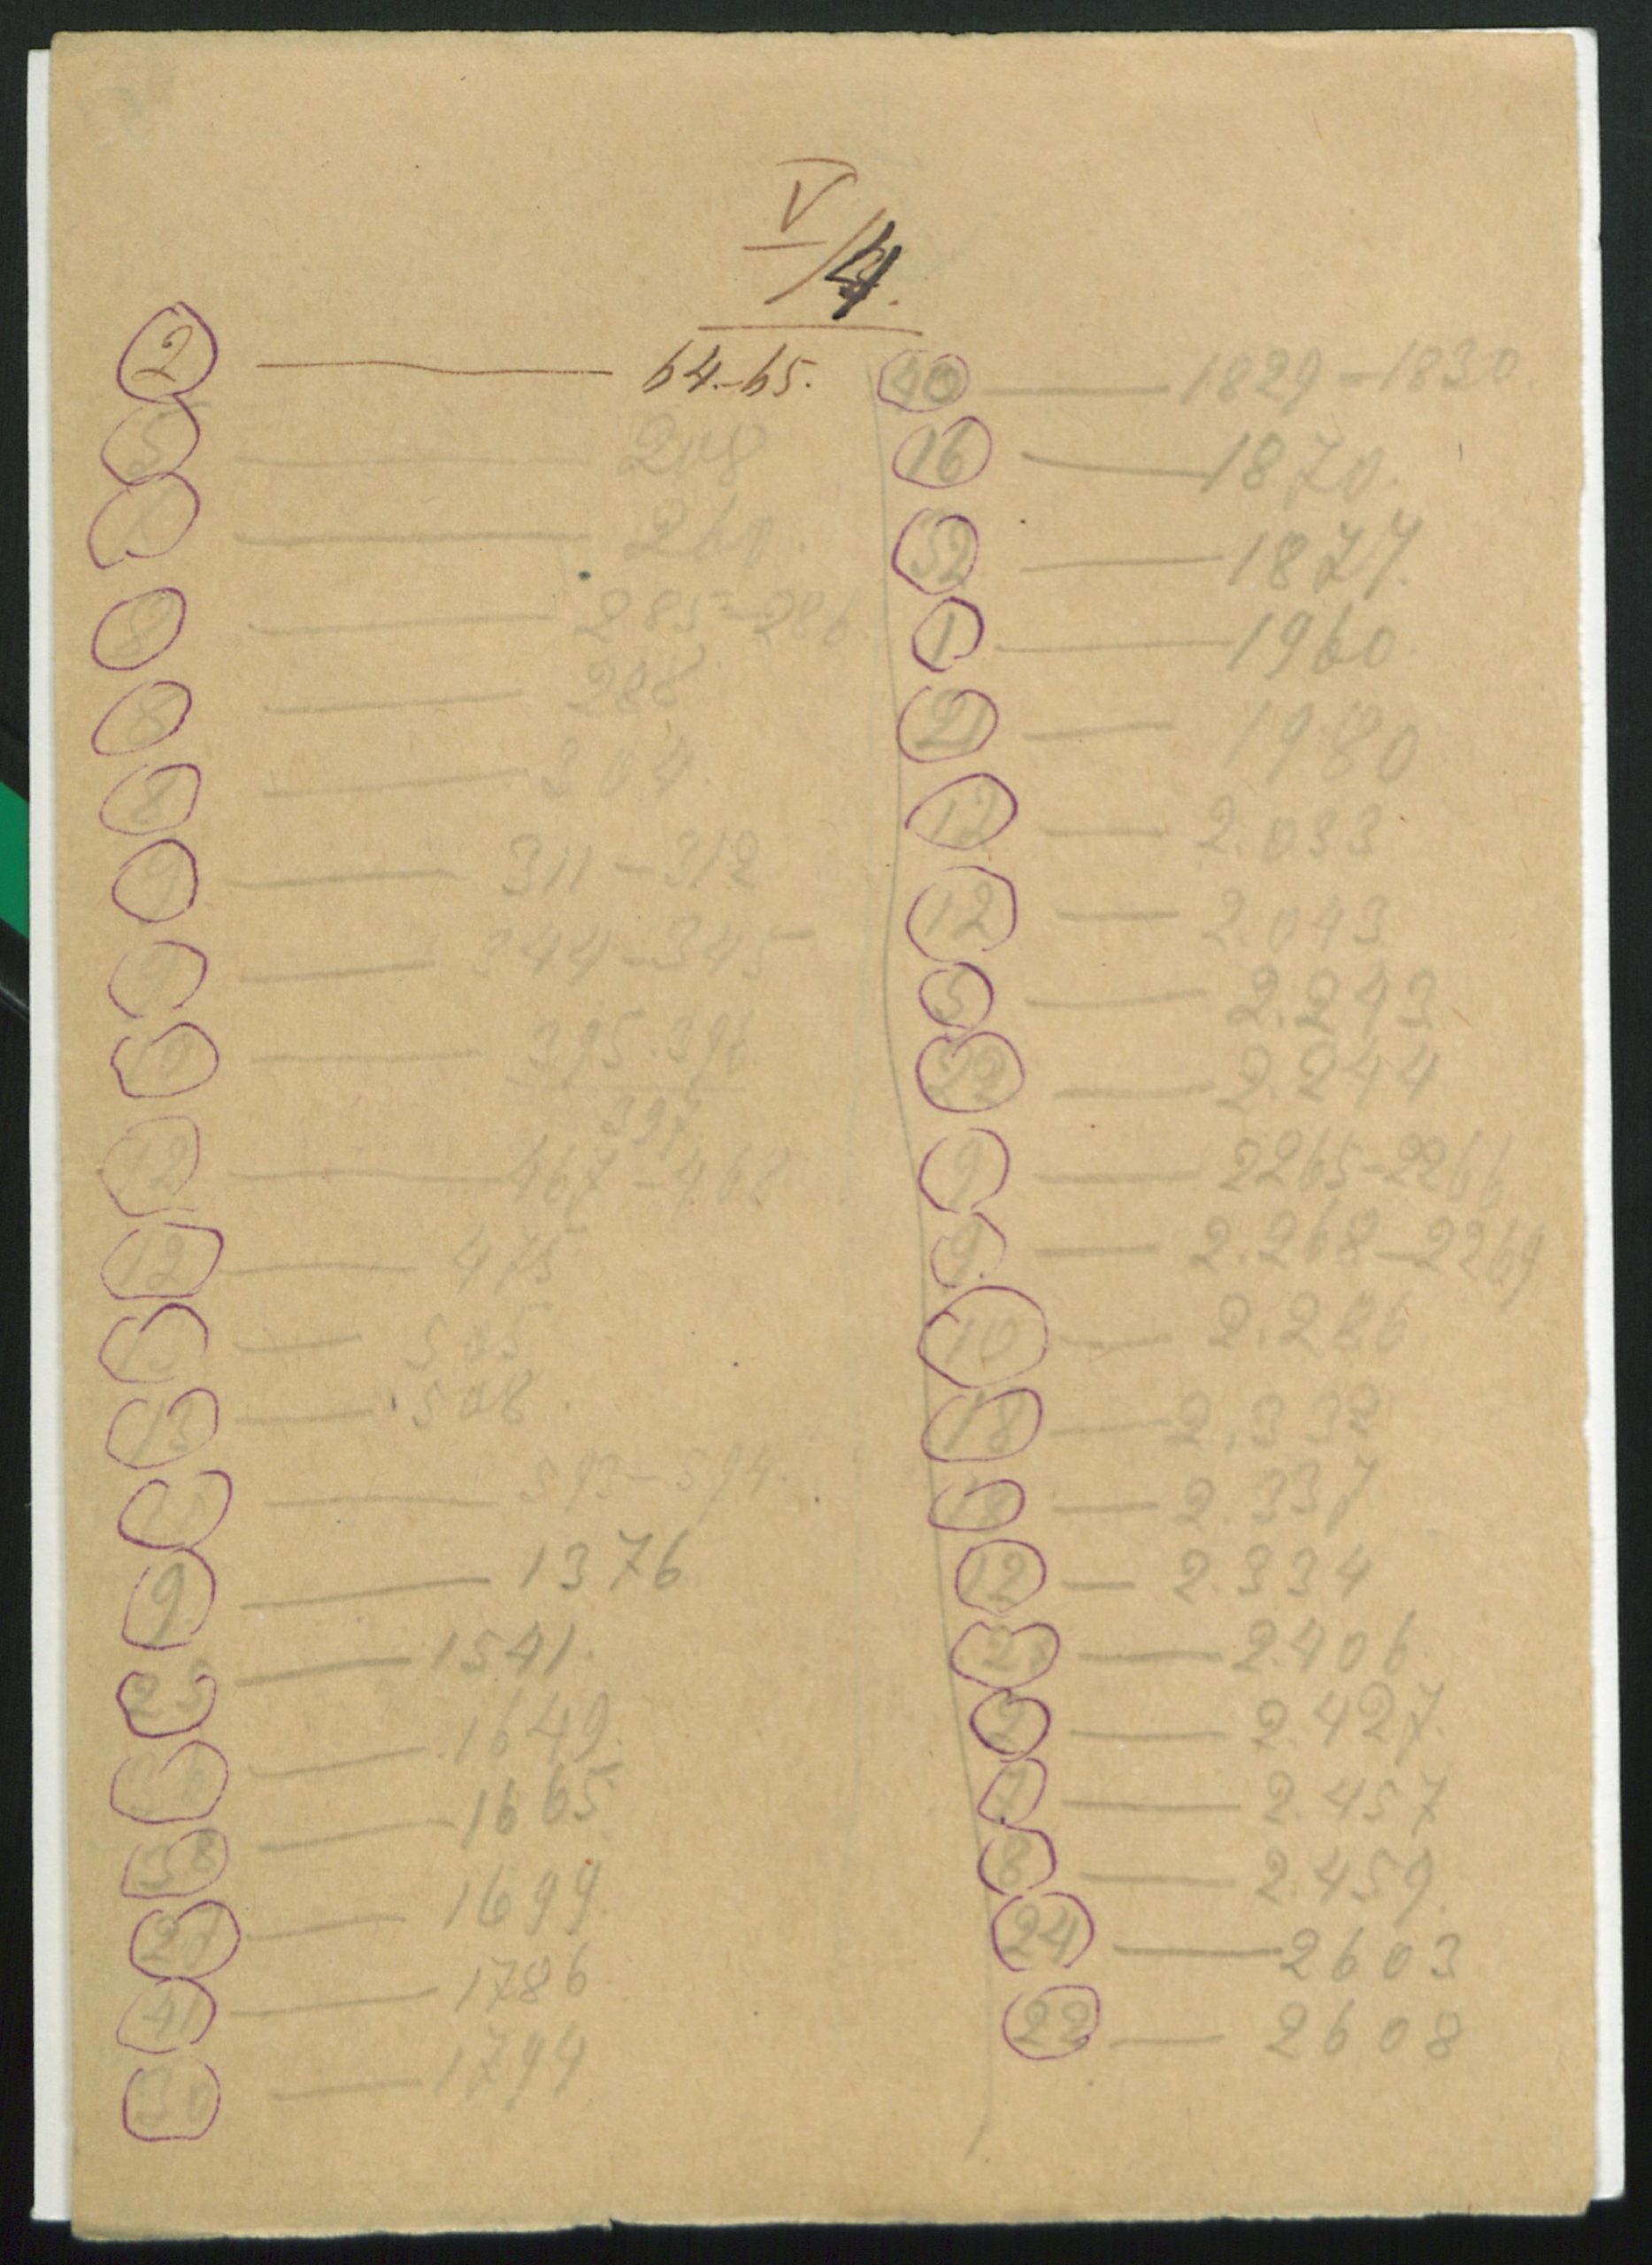 V/4.
② — 64.-65.
5 — 208
— 260.
8 — 285-286.
8 — 288
8 — 304.
9 — 311-312
9 — 344-345
10 — 395.396
397
12 — 467-468
12 — 475
13 — 505
13 — 508.
— 593-594.
9. — 1376
23 — 1541.
— 1649.
38 — 1665
27 — 1699.
41 — 1786
— 1794
40 — 1829-1830.
16 — 1870.
32 — 1877.
1 — 1960
21 — 1980
12 — 2.033
12 — 2.043
5 — 2.243
22 — 2.244
9 — 2265-2266
9. — 2.268-2269
10 — 2.286
18 — 2.332
18 — 2.337
12 — 2.334
— 2.406
2 — 2.427.
7 — 2.457
8 — 2.459.
24 — 2603
22 — 2608